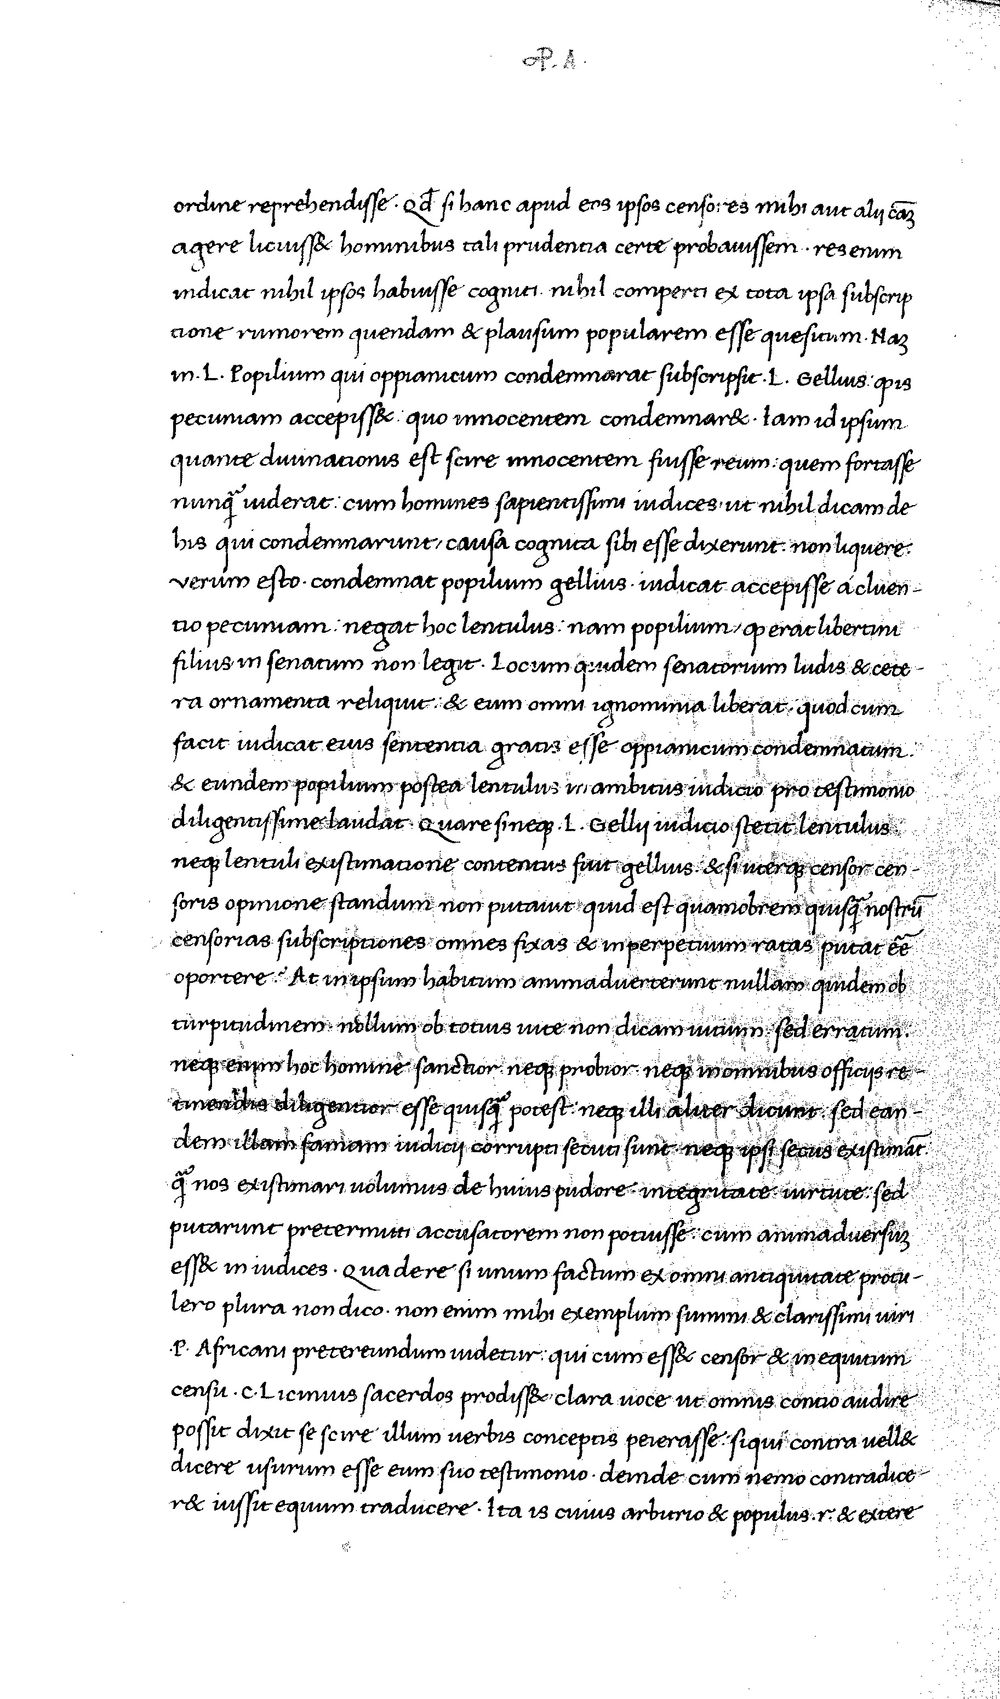 P. A.
ordine reprehendisse. Qđ si hanc apud eos ipsos censores mihi aut alij cāȝ
agere licuiss& hominibus tali prudentia certe probauissem. res enim
indicat nihil ipsos habuisse cogniti. nihil comperti ex tota ipsa subscrip
tione rumorem quendam & plausum popularem esse quesitum. Naȝ
in. L. Popilium qui oppianicum condemnarat subscripsit. L. Gellius: ꝙ is
pecuniam accepiss&: quo innocentem condemnar&. Iam id ipsum
quante diuinationis est scire innocentem fuisse reum: quem fortasse
nunq̄ uiderat: cum homines sapientissimi iudices, ut nihil dicam de
his qui condemnarunt, causa cognita sibi esse dixerunt. non liquere.
verum esto. condemnat popilium gellius. iudicat accepisse a cluen-
tio pecuniam: negat hoc lentulus: nam popilium, ꝙ erat libertini
filius in senatum non legit. Locum quidem senatorium ludis & cete-
ra ornamenta reliquit: & eum omni ignominia liberat, quod cum
facit iudicat eius sententia gratis esse oppianicum condemnatum.
& eundem popilium postea lentulus in ambitus iudicio pro testimonio
diligentissime laudat. Quare si neqȝ. L. Gellij iudicio stetit lentulus
neqȝ lentuli existimatione contentus fuit gellius. & si uterqȝ censor cen-
soris opinione standum non putauit quid est quamobrem quisq̄ nostrū
censorias subscriptiones omnes fixas & in perpetuum ratas putat eē
oportere. At in ipsum habitum animaduerterunt nullam quidem ob
turpitudinem. nullum ob totius uite non dicam uitium. sed erratum.
neqȝ enim hoc homine sanctior. neqȝ probior. neqȝ in omnibus officijs re-
tinendis diligentior esse quisq̄ potest. neqȝ illi aliter dicunt. sed ean-
dem illam famam iudicij corrupti secuti sunt. neqȝ ipsi secus existimāt.
q̄ nos existimari uolumus de huius pudore. integritate. uirtute. sed
putarunt pretermitti accusatorem non potuisse. cum animaduersuȝ
ess& in iudices. Qua de re si unum factum ex omni antiquitate protu-
lero plura non dico. non enim mihi exemplum summi & clarissimi uiri
.P. Africani pretereundum uidetur: qui cum ess& censor & in equitum
censu. C. Licinius sacerdos prodiss& clara uoce ut omnis contio audire
possit dixit se scire illum uerbis conceptis peierasse: si qui contra uell&
dicere usurum esse eum suo testimonio. deinde cum nemo contradice-
r& iussit equum traducere. Ita is cuius arbitrio & populus. r. & extere